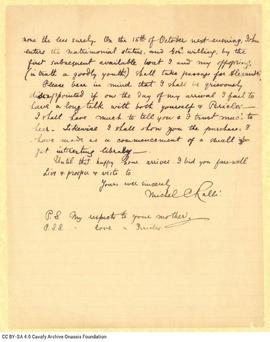 none the less surely. On the 15th of October next evening, John
enters the matrimonial status, and God willing, by the
first subsequent available boat I and my offspring,
(in truth a goodly youth) shall take passage for Alexandria
Please bear in mind that I shall be grievously
disappointed if on the day of my arrival I fail to
have a long talk with both yourself & Pericles.
I shall have much to tell you & I trust much to
hear. Likewise I shall show you the purchases I
have made as a commencement of a small &
yet interesting library.
Until that happy hour arrives I bid you farewell
Live & prosper & write to
Yours ever sincerely
Mikès C Ralli.
P.S. My respects to your mother,
P.S.S. " love "
CC BY-SA 4.0 Cavafy Archive Onassis Foundation